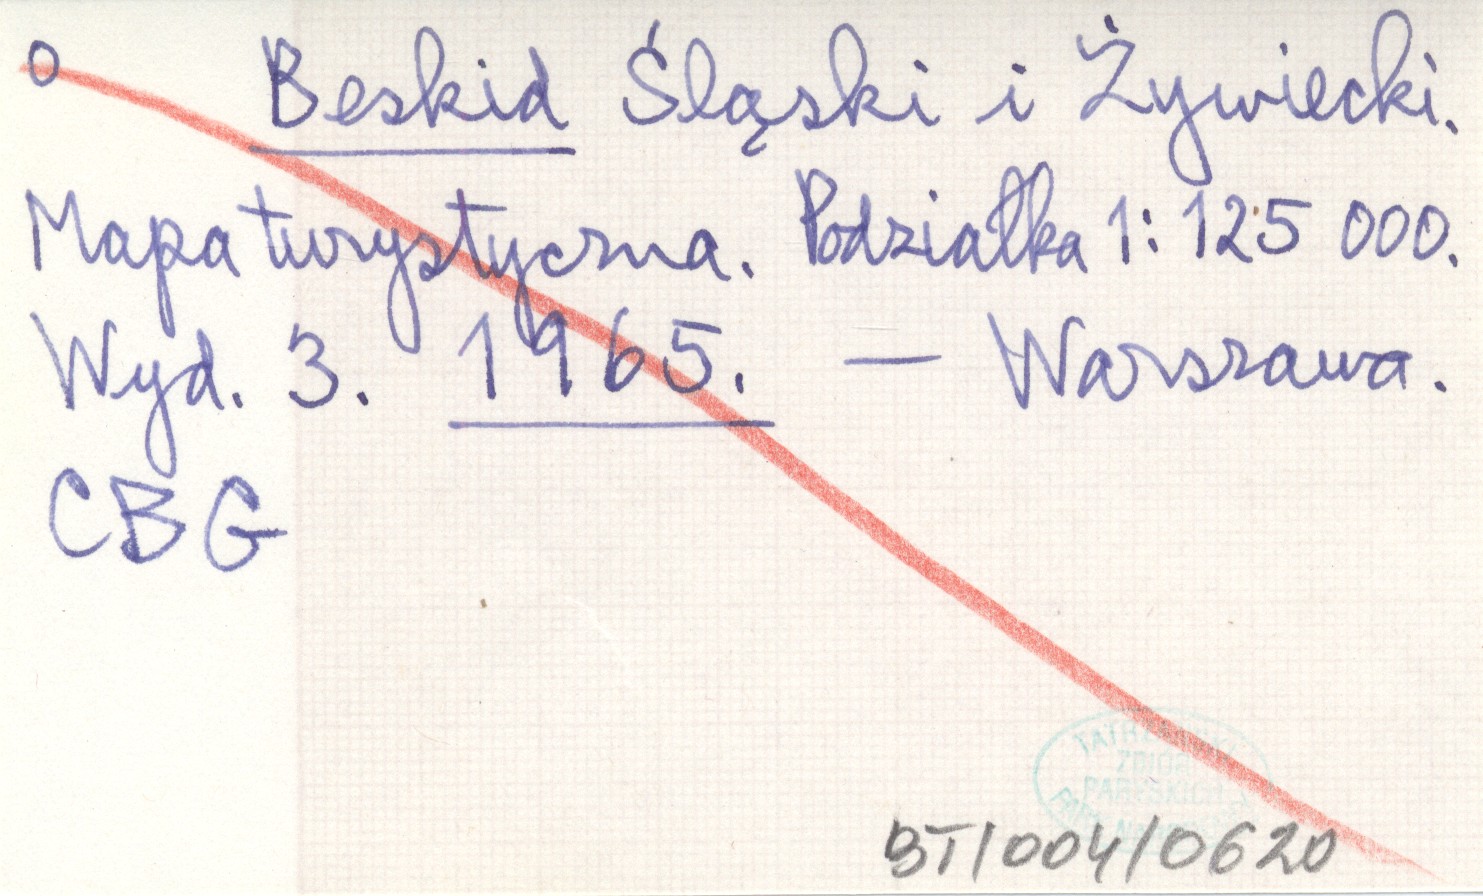 o Beskid Śląski i Żywiecki.
Mapa turystyczna. Podziałka 1:125 000.
Wyd. 3. 1965. — Warszawa.
CBG
TATRZAŃSKI
ZBIÓR
PARYSKICH
PARK NARODOWY
BT/004/0620